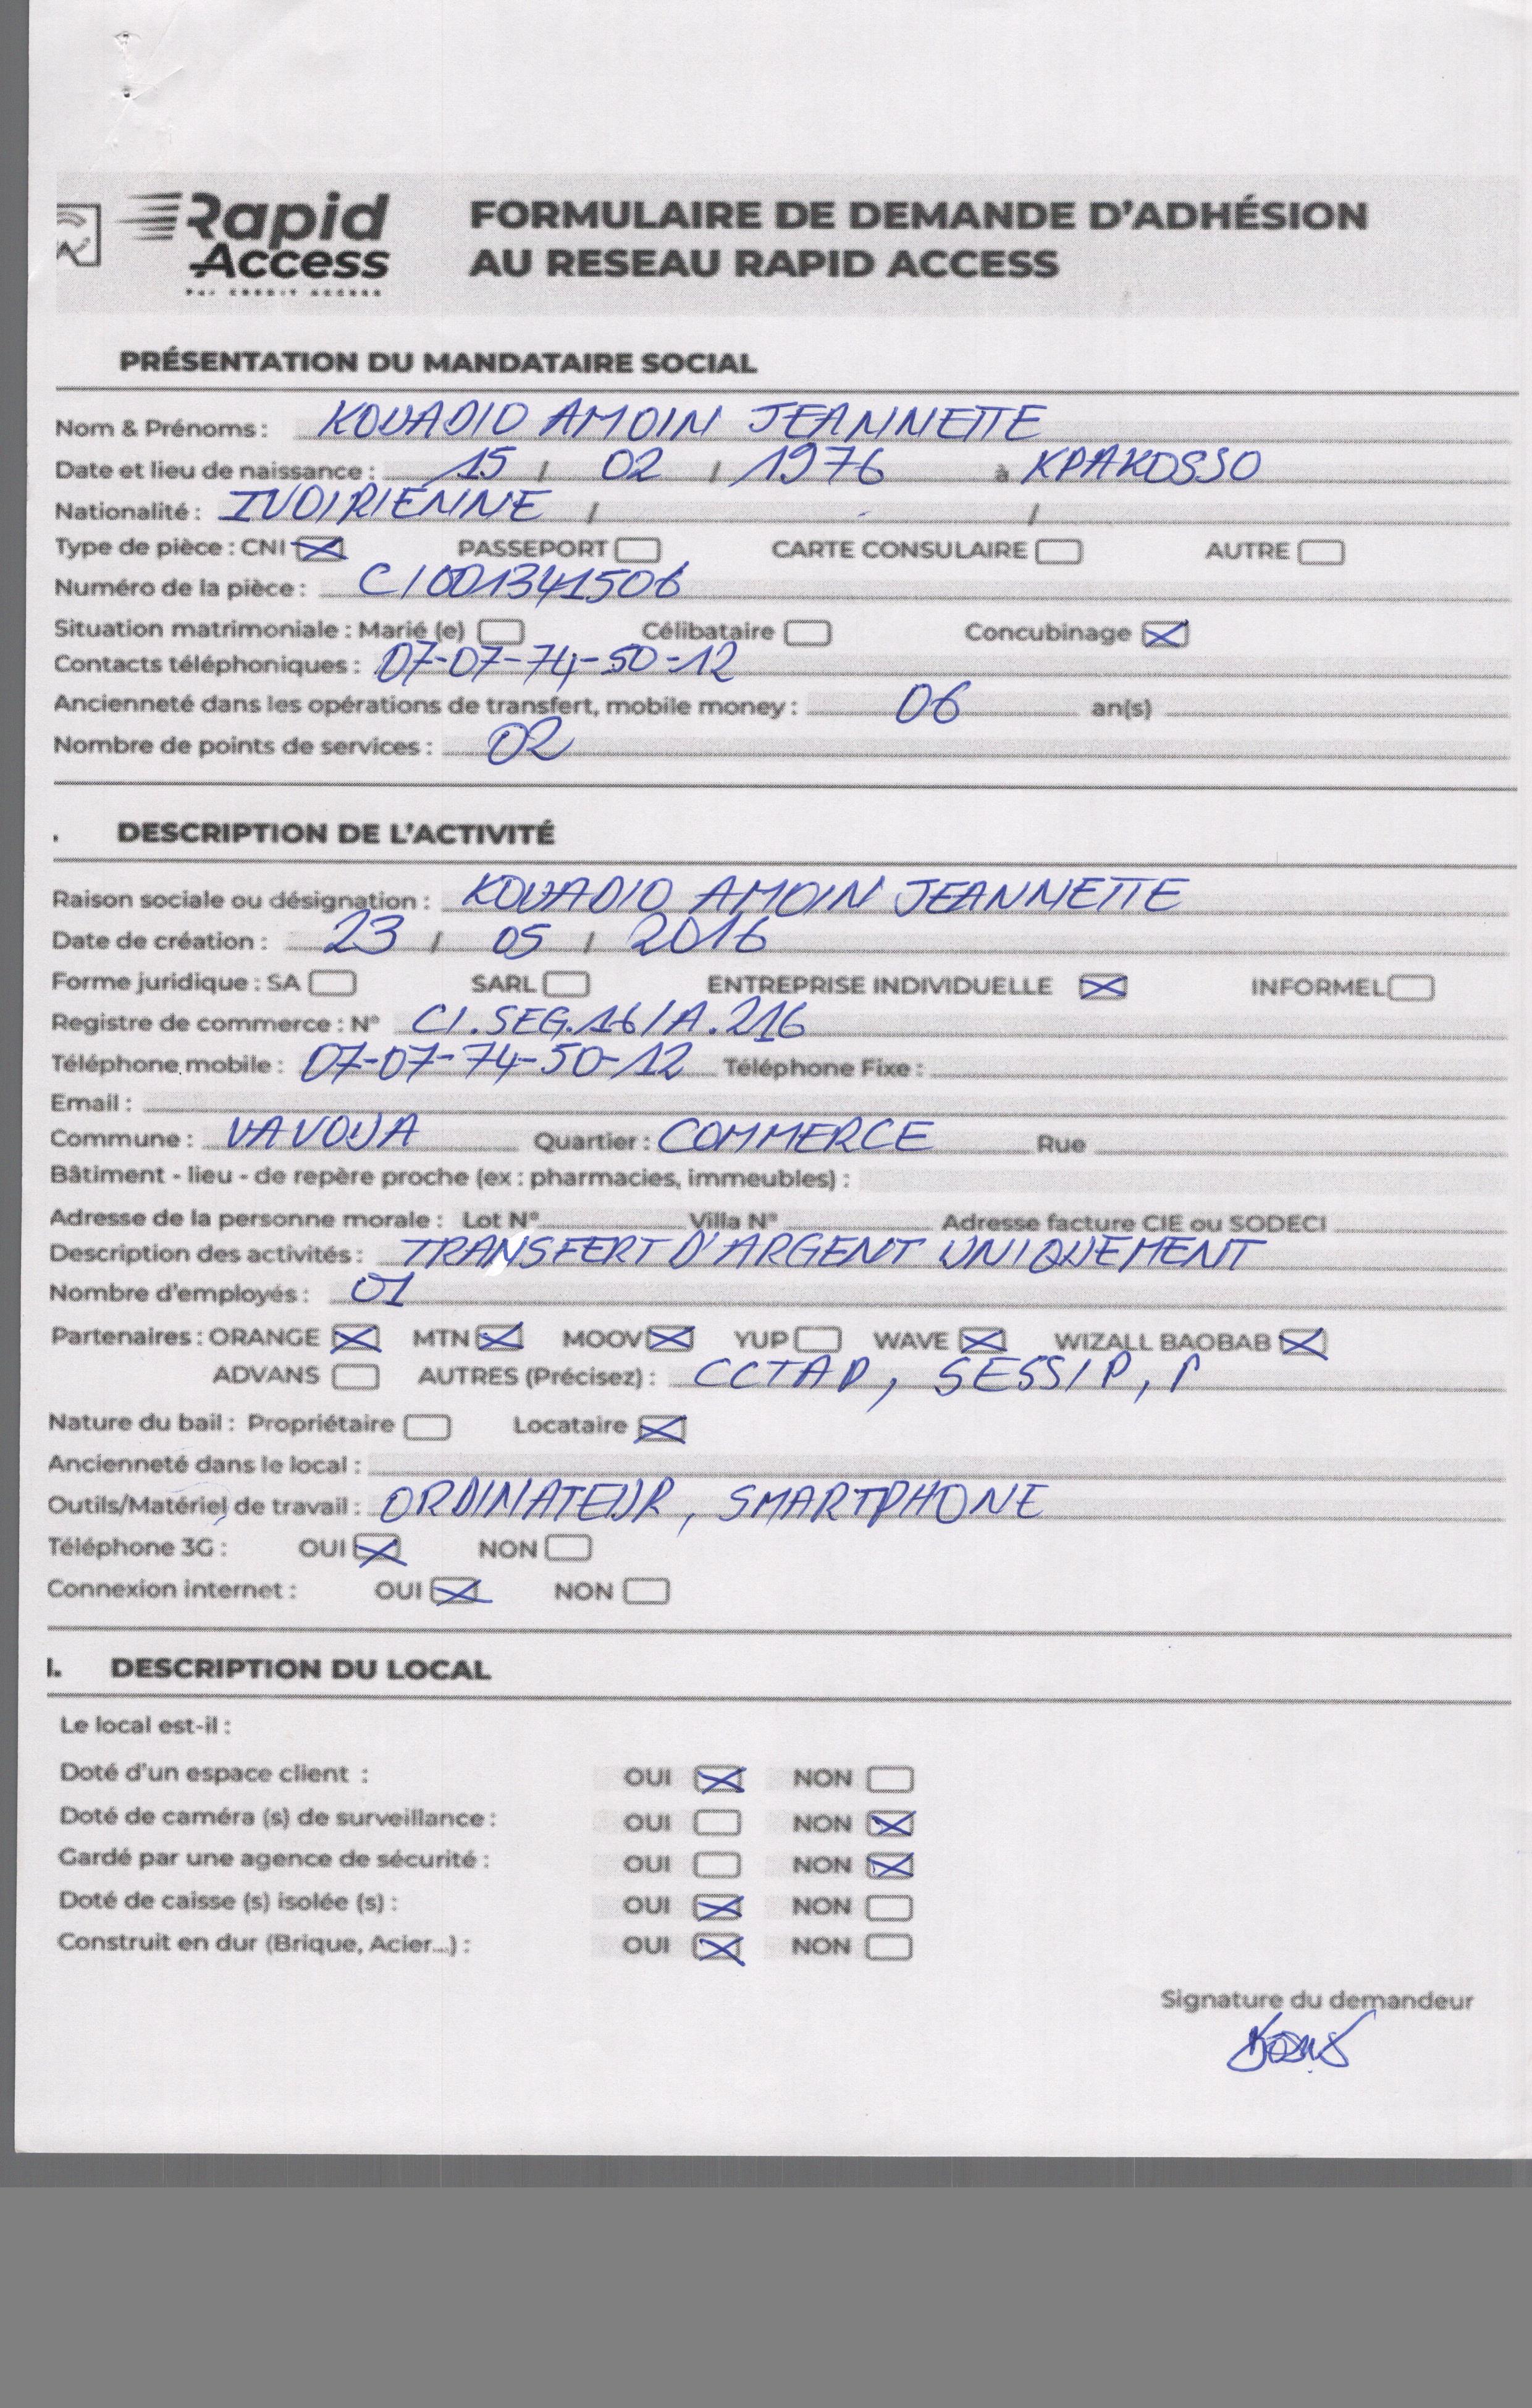 Rapid
Access
PAR CREDIT ACCESS
FORMULAIRE DE DEMANDE D'ADHÉSION
AU RESEAU RAPID ACCESS
PRÉSENTATION DU MANDATAIRE SOCIAL
Nom & Prénoms : KOUADIO AMOIN JEANNETTE
Date et lieu de naissance : 15 / 02 / 1976 à KPAKOSSO
Nationalité : IVOIRIENNE / /
Type de pièce : CNI ☒ PASSEPORT ☐ CARTE CONSULAIRE ☐ AUTRE ☐
Numéro de la pièce : CI001341506
Situation matrimoniale : Marié (e) ☐ Célibataire ☐ Concubinage ☒
Contacts téléphoniques : 07-07-74-50-12
Ancienneté dans les opérations de transfert, mobile money : 06 an(s)
Nombre de points de services : 02
. DESCRIPTION DE L'ACTIVITÉ
Raison sociale ou désignation : KOUADIO AMOIN JEANNETTE
Date de création : 23 / 05 / 2016
Forme juridique : SA ☐ SARL ☐ ENTREPRISE INDIVIDUELLE ☒ INFORMEL ☐
Registre de commerce : N° CI.SEG.16/A.216
Téléphone mobile : 07-07-74-50-12 Téléphone Fixe :
Email :
Commune : VAVOUA Quartier : COMMERCE Rue
Bâtiment - lieu - de repère proche (ex : pharmacies, immeubles) :
Adresse de la personne morale : Lot N° Villa N° Adresse facture CIE ou SODECI
Description des activités : TRANSFERT D'ARGENT UNIQUEMENT
Nombre d'employés : 01
Partenaires : ORANGE ☒ MTN ☒ MOOV ☒ YUP ☐ WAVE ☒ WIZALL BAOBAB ☒
ADVANS ☐ AUTRES (Précisez) : CCTAP, SESSIP,
Nature du bail : Propriétaire ☐ Locataire ☒
Ancienneté dans le local :
Outils/Matériel de travail : ORDINATEUR, SMARTPHONE
Téléphone 3G : OUI ☒ NON ☐
Connexion internet : OUI ☒ NON ☐
I. DESCRIPTION DU LOCAL
Le local est-il :
Doté d'un espace client : OUI ☒ NON ☐
Doté de caméra (s) de surveillance : OUI ☐ NON ☒
Gardé par une agence de sécurité : OUI ☐ NON ☒
Doté de caisse (s) isolée (s) : OUI ☒ NON ☐
Construit en dur (Brique, Acier...) : OUI ☒ NON ☐
Signature du demandeur